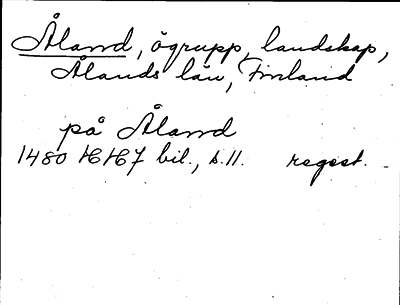 Åland, ögrupp, landskap,
Ålands län, Finland
på Åland
1480 16/167 bil., s. 11. regest.